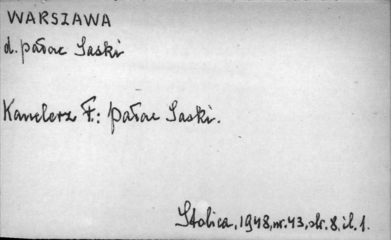 WARSZAWA
d. pałac Saski
Kanclerz F.: pałac Saski.
Stolica, 1948, nr. 43, str. 8, il. 1.